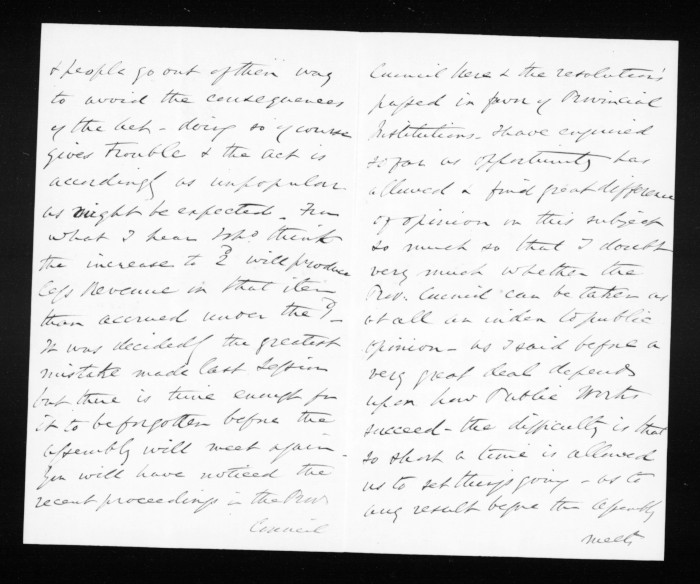 & people go out of their way
to avoid the consequences
of the Act - doing so of course
gives Trouble & the act is
accordingly as unpopular
as might be expected - From
what I hear I shd think
the increase to 2d will produce
less Revenue in that item
than accrued under the 1d -
It was decidedly the greatest
mistake made last Session
but there is time enough for
it to be forgotten before the
Assembly will meet again -
You will have noticed the
recent proceedings in the Prov
Council
Council here & the resolutions
passed in favor of Provincial
Institutions - I have enquired
so far as opportunity has
allowed & find great difference
of opinion on this subject
so much so that I doubt
very much whether the
Prov. Council can be taken as
at all an index to public
opinion - as I said before a
very great deal depends
upon how Public Works
succeed - the difficulty is that
so short a time is allowed
us to set things going - as to
any result before the Assembly
meets